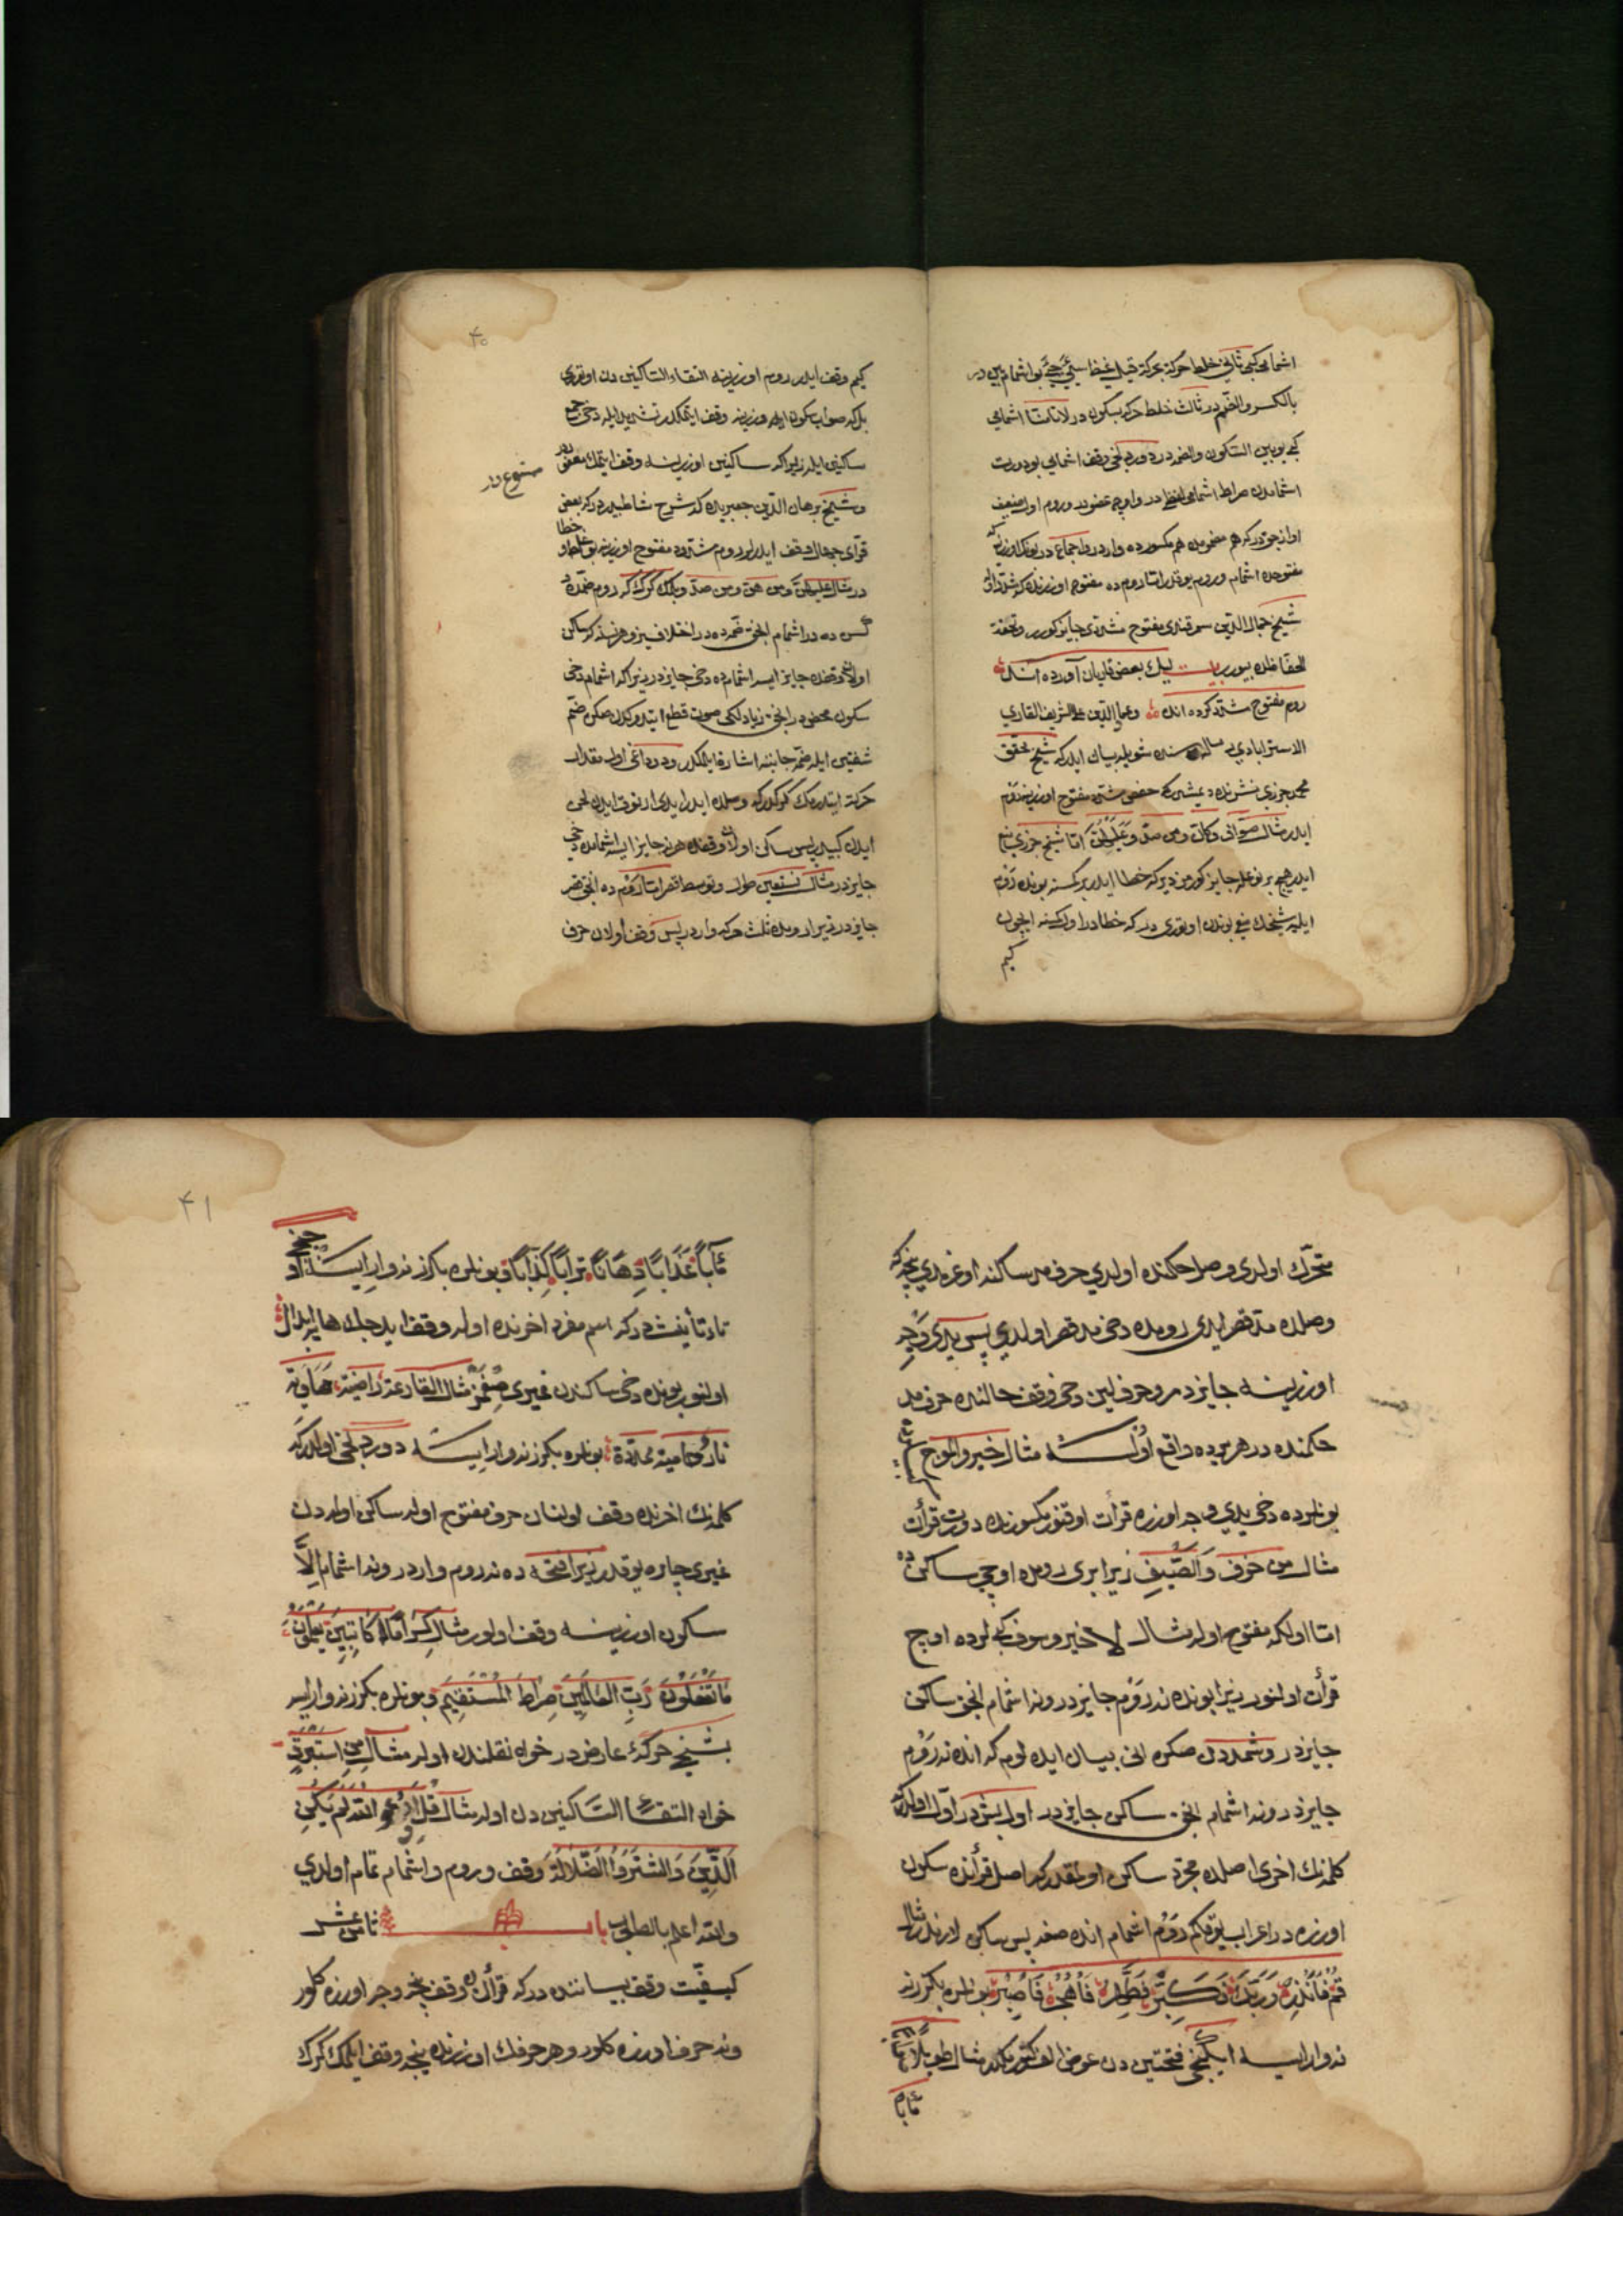 اشمامی کبی ثانی خلط حرکة بحرکة قیل غیض سیئ جیئ بو اشمام بین در
بالکسر والضم در ثالث خلط حرکه بسکون در لا تامنا اشمامی
کبی بو بین السکون والضمه در دوردنجی وقف اشمامی بو دورت
اشمامدن صراط اشمامی لفظی در واوچی عضوی در وروم اول ضعیف
اوازجق در که هم مضمومده هم مکسورده وارد در واجماع در بونک اوزرینه که
مفتوحده اشمام وروم یوقدر اما روم ده مفتوح اوزرنده که مشدد اوله
شیخ جمال الدین سمرقندی مفتوح مشددی جایز کورر وتحفة
الحفاظده بیورر بیت لیک بعضی قاریان آورده اند
روم مفتوح مشدد کرده اند وعماد الدین علی الشریف القاری
الاسترابادی رساله سنده شویله بیان ایدر که شیخ محقق
محمد جزری نشرنده دیمشدر که بعض مشدد مفتوح اوزرینه روم
ایدر مثال صواف وکان ومن صد وعلیهن اما شیخ جزری منع
ایدر هیچ بر نوعله جایز کورمز دیر که خطا ایدر بر کسنه بونده روم
ایلیه شیخک منعی بوندن اوتوری در که خطادر اول کسنه ایچون
کیم
۴۰
کیم وقف ایدر روم اوزرینه التقاء الساکنین دن اوتوری
بلکه صواب سکون اوزرینه وقف ایتمکدر تشدید ایله دخی جمع
ساکنین ایله زیرا که ساکنین اوزرینه وقف ایتمک معفو در
ممنوع در
وشیخ برهان الدین جعبری ده که شرح شاطبیده در که بعض
قرای جهال وقف ایدرلر روم مشدد مفتوح اوزرینه بو خطا
در مثال علیهن ومن هن ومن صد وبلمک کرک که روم ضمه ده
کسره ده در اشمام انجق ضمه ده در اختلافسز وهر نسنه که ساکن
اولان وقفده جایز ایسه اشمامده دخی جایز در زیرا که اشمام دخی
سکون محض در انجق زیاد لکی صوت قطع ایتدوکدن صکره ضم
شفتین ایله ضمه جانبنه اشارة ایلمکدر ودوداغی اول مقدار
حرکة ایتدرمک کرکدر که وصلده ایدر ایدی ارتوق ایدن لحن
ایدن کبیدر پس ساکن اولان وقفده هر نه جایز ایسه اشمامده دخی
جایز در مثال نستعین طول وتوسط وقصر اما رومده انجق قصر
جایز در زیرا رومده ثلث حرکه وارد در پس وقف اولان حرف
متحرک اولدی وصل حکمنده اولدی حرف مد ساکنه اوغرمدی نیجه که
وصلده مد قصر ایدی رومده دخی مد قصر اولدی پس یدی وجه
اوزرینه جایز در وحرف لین دخی وقف حالنده حرف مد
حکمنده در هر نرده واقع اولسه مثال خیر والموج
بونلرده دخی یدی وجه اوزره قرأت اوقنور مکسورنده دورت قرأت
مثال من خوف والصیف زیرا بری رومده اوچی ساکن ده
اما اولکه مفتوح اوله مثال لا خیر وسوف کبیلرده اوچ
قرأت اولنور زیرا بونده نه روم جایز در ونه اشمام انجق ساکن
جایز در وشمدن صکره انی بیان ایده لوم که انده نه روم
جایز در ونه اشمام انجق ساکن جایز در اول بشدر اول اولدر که
کلمه نک اخری اصلده مجرد ساکن اولمقدر که اصل قرأنده سکون
اوزره در اعراب یوقدر کم روم اشمام انده صغه پس ساکن لازمدر مثال
قم فانذر وربک فکبر فطهر فاهجر فاصبر بونلره بکزر نه
نه وار ایسه ایکنجی فتحتین دن عوض الف کتورمکدر مثال طویلا
مابا
۴۱
مآبا عذابا دهاقا ترابا کذابا بونلره بکزر نه وار ایسه اوچنجی
تاء تأنیث در که اسم مفرد اخرنده اوله وقف ایدیجک هایه ابدال
اولنور بونده دخی ساکندن غیری صغمز مثال القارعة راضیة هاویة
نار حامیة ممددة بونلره بکزر نه وار ایسه دوردنجی اولدر که
کلمه نک اخرنده وقف اولنان حرف مفتوح اوله ساکن اولمه دن
غیری چاره یوقدر زیرا فتحه ده نه روم وارد در ونه اشمام الا
سکون اوزرینه وقف اولور مثال کراما کاتبین یعلمون
ما تفعلون رب العالمین صراط المستقیم وبونلره بکزر نه وار ایسه
بشنجی حرکه عارض در خواه نقلندن اوله مثال من استبرق
خواه التقاء الساکنین دن اوله مثال قل ادعوا الله لم یکن
الذین والشتروا الضلالة وقف وروم واشمام تمام اولدی
والله اعلم بالصواب باب ثامن عشر
کیفیت وقف بیاننده در که قرأنده وقف نیجه وجه اوزره کلور
ونه حرف اوزره کلور وهر حرفک اوزرنده نیجه وقف ایلمک کرک